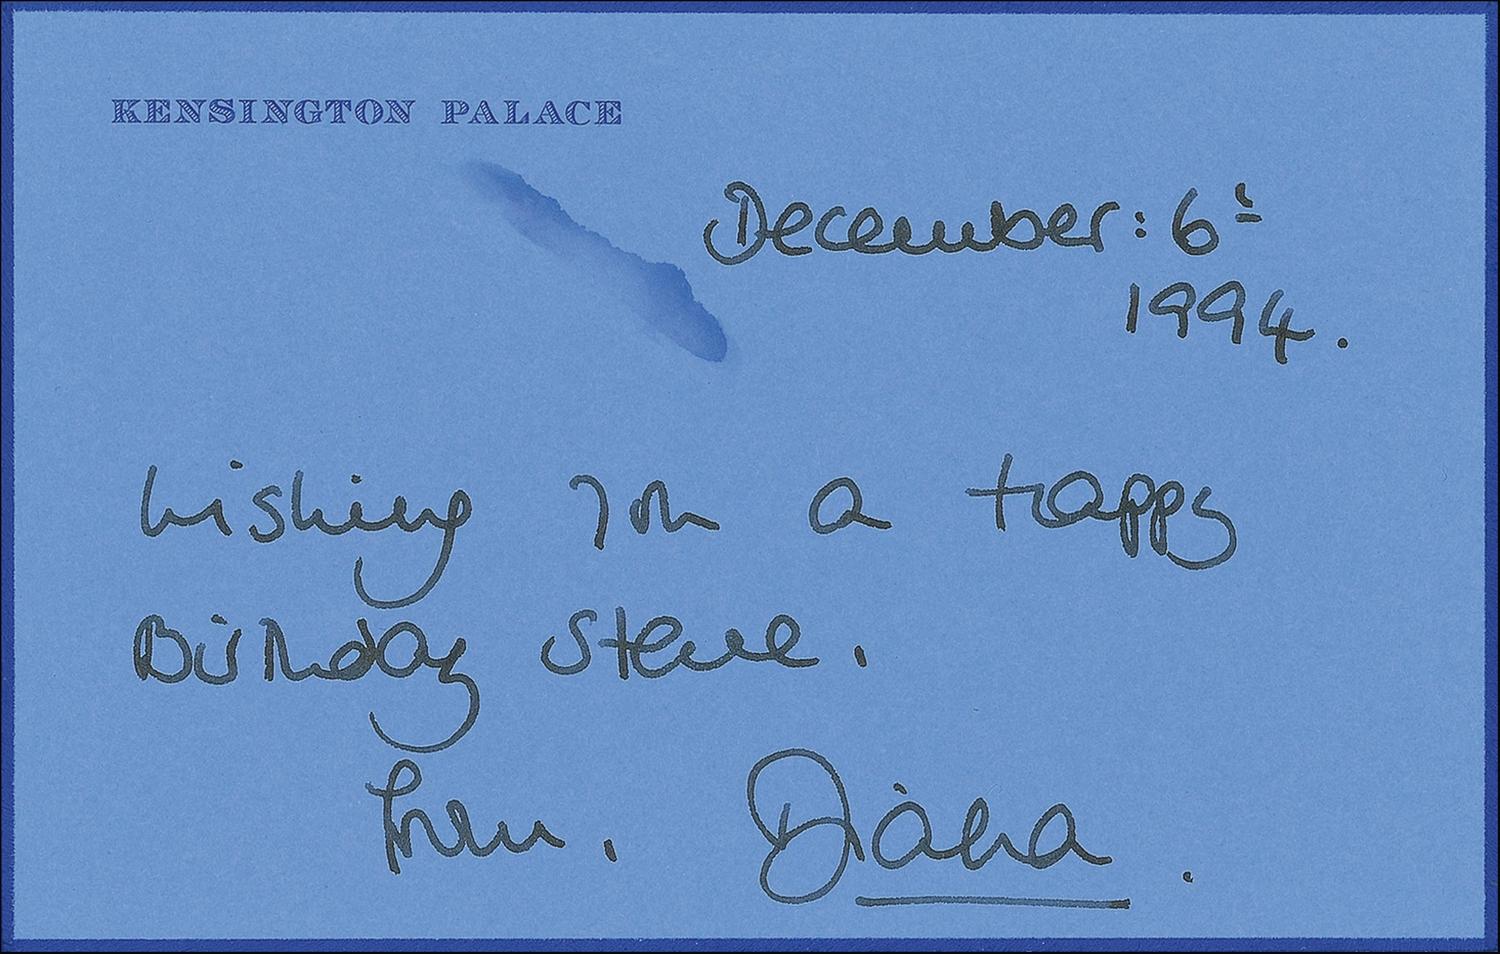 KENSINGTON PALACE
December: 6th
1994.
Wishing you a happy
Birthday Steve.
from. Diana.